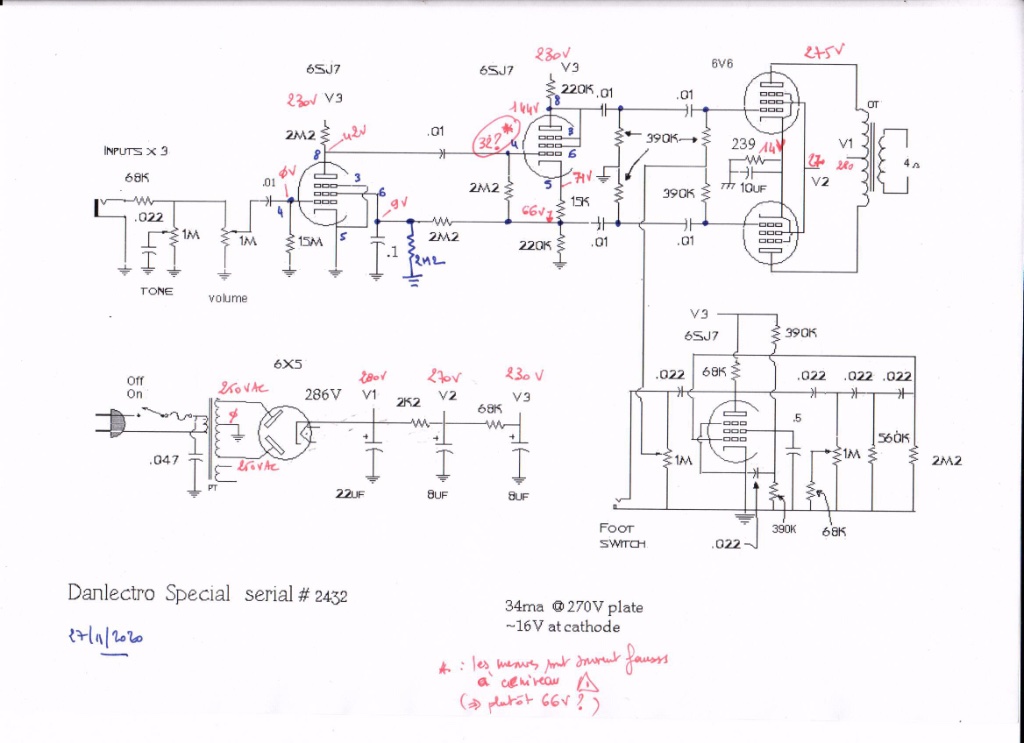 6SJ7
230V V3
2M2
42V
8
INPUTS X 3
68K
.022
1M
TONE
1M
volume
.01
ØV
4
15M
3
6
5
9V
.1
2M2
2M2
.01
2M2
6SJ7
230V
V3
220K
8
144V
32? *
4
3
6
5
71V
15K
66V
220K
.01
.01
390K
.01
.01
390K
6V6
275V
239
14V
10UF
270
V2
OT
V1
280
4Ω
6X5
Off
On
250VAC
Ø
250VAC
.047
PT
286V
280V
V1
2K2
270V
V2
68K
230V
V3
22UF
8UF
8UF
V3
6SJ7
390K
68K
.022
.022
.022
.022
.5
1M
1M
560K
2M2
390K
68K
.022
FOOT
SWITCH
Danlectro Special serial # 2432
27/11/2020
34ma @ 270V plate
~16V at cathode
* : les mesures sont souvent fausses
à ce niveau ⚠
(⇒ plutôt 66V ?)